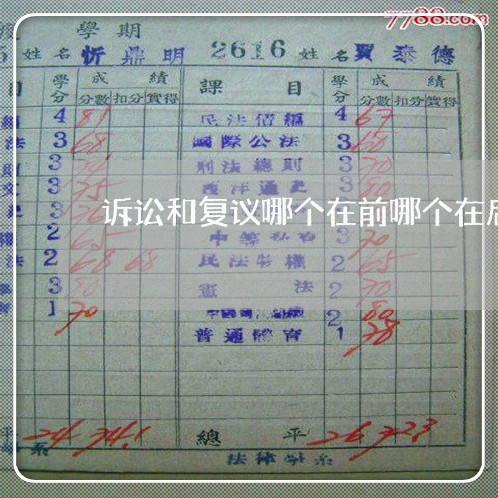 7788.com
學期
姓名 忻鼎明 2616 姓名 賈泰德
目 學分 成績 課目 學分 成績
分數 扣分 實得 分數 扣分 實得
4 81 民法債編 4 67
法 3 68 國際公法 3 60
3 刑法總則 3 70
3 75 西洋通史 3 80
诉讼和复议哪个在前哪个在后
2 65 3 70
法 2 68 68 民法物權 2 65
3 80 憲法 2 70
1 70 2 80
普通體育 1 78
平 24 74.1 總平 26 72.3
系 法律學系